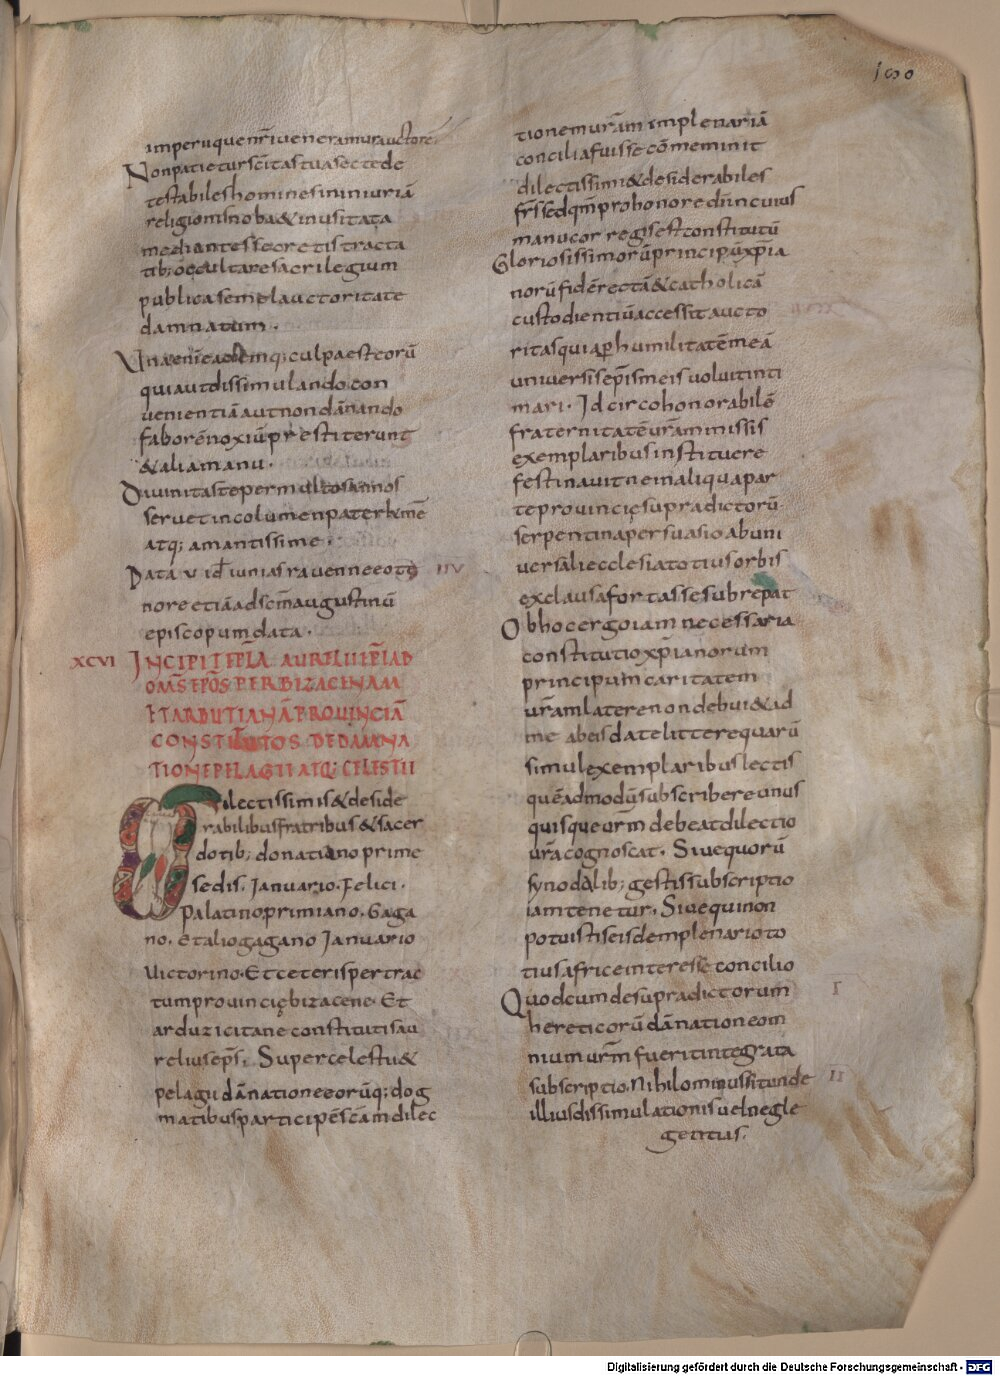 100
imperuquenr̄iueneramurauctore
Nonpatieturs̄citastuasectede
testabileshominesininiuriā
religionisnoba&inusitata
mediantessecretistracta
tib;occultaresacrilegium
publicasemelauctoritate
damnatum.
Vnaen̄ieademq;culpaesteorū
quiautdissimulandocon
uenientiāautnondānando
faborēnoxiūprestiterunt
&aliamanu.
Diuinitasteperm ultosannos
seruetincolumenpaterkm̄e
atq; amantissime.
Data v id iunias rauenneeotē
noreetiāadsc̄maugustinū
episcopumdata.
XCVI INCIPIT EPL̄A AURELII EPĪ AD
OMS EPŌS PER BIZACENAM
ET ARBUTIANĀ PROUINCIĀ
CONSTITUTOS DE DAMNA
TIONE PELAGII ATQ; CELESTII
Dilectissimis&deside
rabilibusfratribus&sacer
dotib; donatianoprime
sedis. Ianuario. Felici.
Palatinoprimiano. Gaga
no. &taliogagano Ianuario
Uictorino. Etceterispertrac
tumprouinciębizacene. Et
arduzicitaneconstitutisau
reliusep̄s. Supercelestii&
pelagii dānationeeorūq; dog
matibusparticipēs̄camdilec
tionemur̄amimplenariā
conciliafuissecōmeminit
dilectissimi&desiderabiles
fr̄ssedqm̄prohonoredn̄icuius
manucor regisestconstitutū
Gloriosissimorūprincipūxp̄ia
norūfidērectā&catholicā
custodientiūaccessitaucto
ritasquiaꝑhumilitatēmeā
uniuersisep̄ismeisuoluitinti
mari. Idcircohonorabilē
fraternitatēur̄ammissis
exemplaribusinstituere
festinauitneinaliquapar
teprouincięsupradictorū
serpentinapersuasioabuni
uersaliecclesiatotiusorbis
exclausafortassesubrepat
Obhocergoiamnecessaria
constitutioxp̄ianorum
principumcaritatem
ur̄amlaterenondebui&ad
me abeisdatelitterequarū
simulexemplaribuslectis
quēadmodūsubscribereunus
quisqueur̄mdebeatdilectio
ur̄acognoscat. Siuequorū
synodalib; gestissubscriptio
iamtenetur. Siuequinon
potuistiseisdemplenarioto
tiusafriceinteresseconcilio
Quodcumdesupradictorum
hereticorūdānationeom
niumur̄mfueritintegrata
subscriptio. Nihilominussitunde
illiusdissimulationisuelnegle
gentius.
I
II
Digitalisierung gefördert durch die Deutsche Forschungsgemeinschaft - DFG